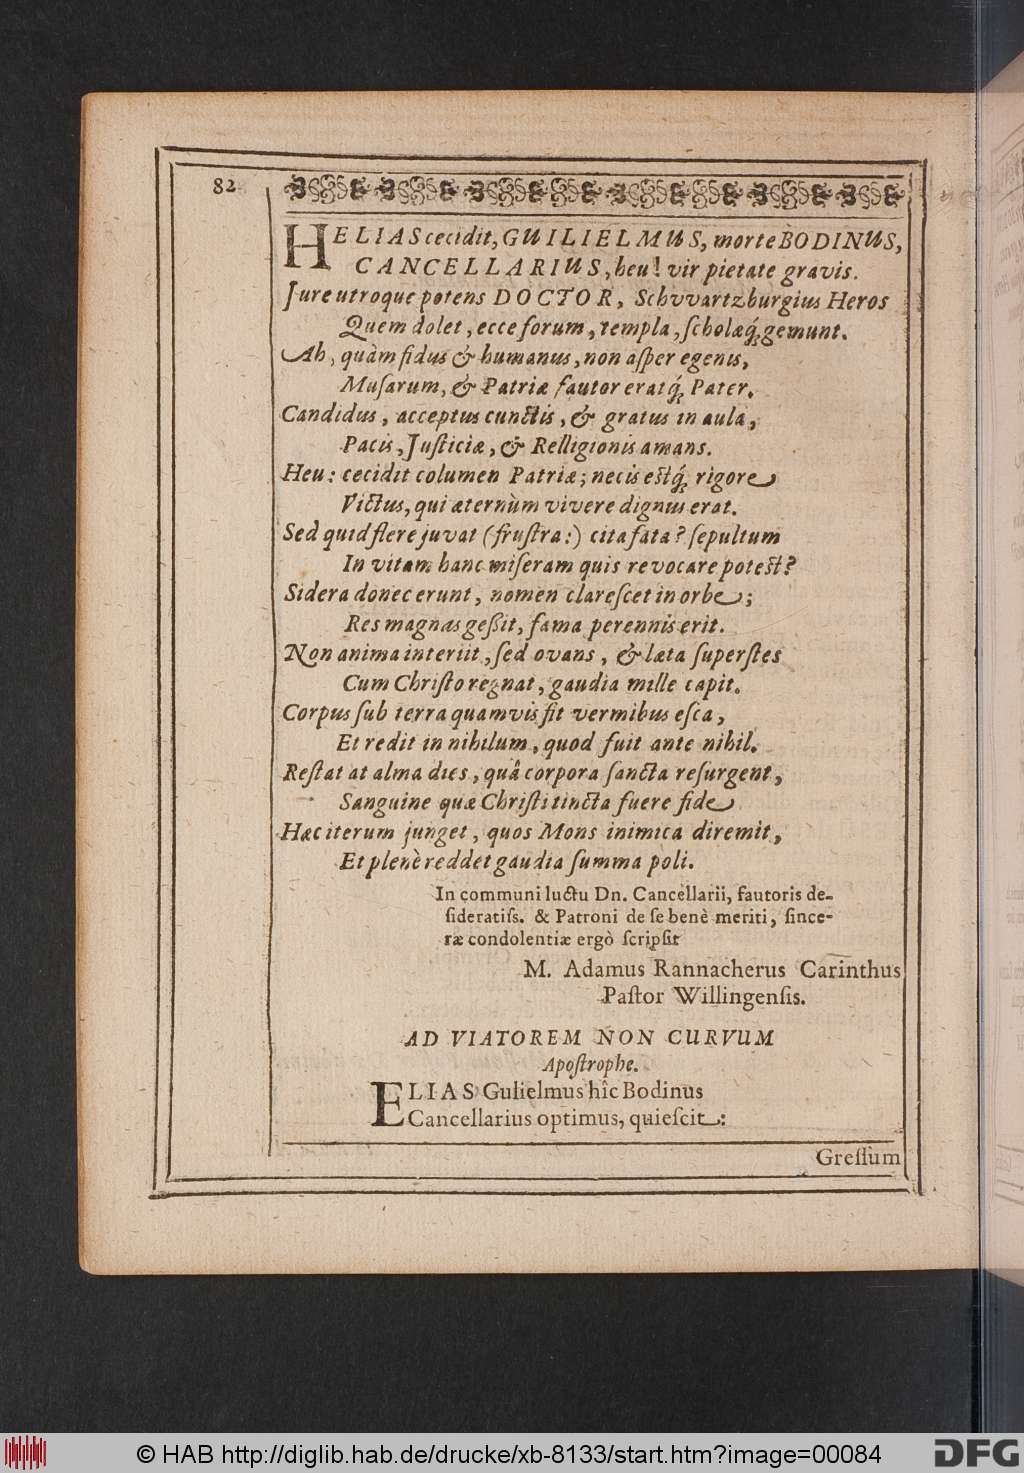 82
HELIAS cecidit, GUILIELMUS, morte BODINUS,
CANCELLARIUS, heu! vir pietate gravis.
Jure utroque potens DOCTOR, Schvvartzburgius Heros
Quem dolet, ecce forum, templa, scholæq́; gemunt.
Ah, quàm fidus & humanus, non asper egenis,
Musarum, & Patriæ fautor eratq́; Pater.
Candidus, acceptus cunctis, & gratus in aula,
Pacis, Justiciæ, & Relligionis amans.
Heu: cecidit columen Patriæ; necis estq́; rigore
Victus, qui æternùm vivere dignus erat.
Sed quid flere juvat (frustra:) cita fata? sepultum
In vitam hanc miseram quis revocare potest?
Sidera donec erunt, nomen clarescet in orbe;
Res magnas gessit, fama perennis erit.
Non anima interiit, sed ovans, & læta superstes
Cum Christo regnat, gaudia mille capit.
Corpus sub terra quamvis fit vermibus esca,
Et redit in nihilum, quod fuit ante nihil.
Restat at alma dies, quâ corpora sancta resurgent,
Sanguine quæ Christi tincta fuere fide
Hæc iterum junget, quos Mons inimica diremit,
Et plenè reddet gaudia summa poli.
In communi luctu Dn. Cancellarii, fautoris de-
sideratiss. & Patroni de se benè meriti, since-
ræ condolentiæ ergò scripsit
M. Adamus Rannacherus Carinthus
Pastor Willingensis.
AD VIATOREM NON CURVUM
Apostrophe.
ELIAS Gulielmus hîc Bodinus
Cancellarius optimus, quiescit:
Gressum
© HAB http://diglib.hab.de/drucke/xb-8133/start.htm?image=00084
DFG